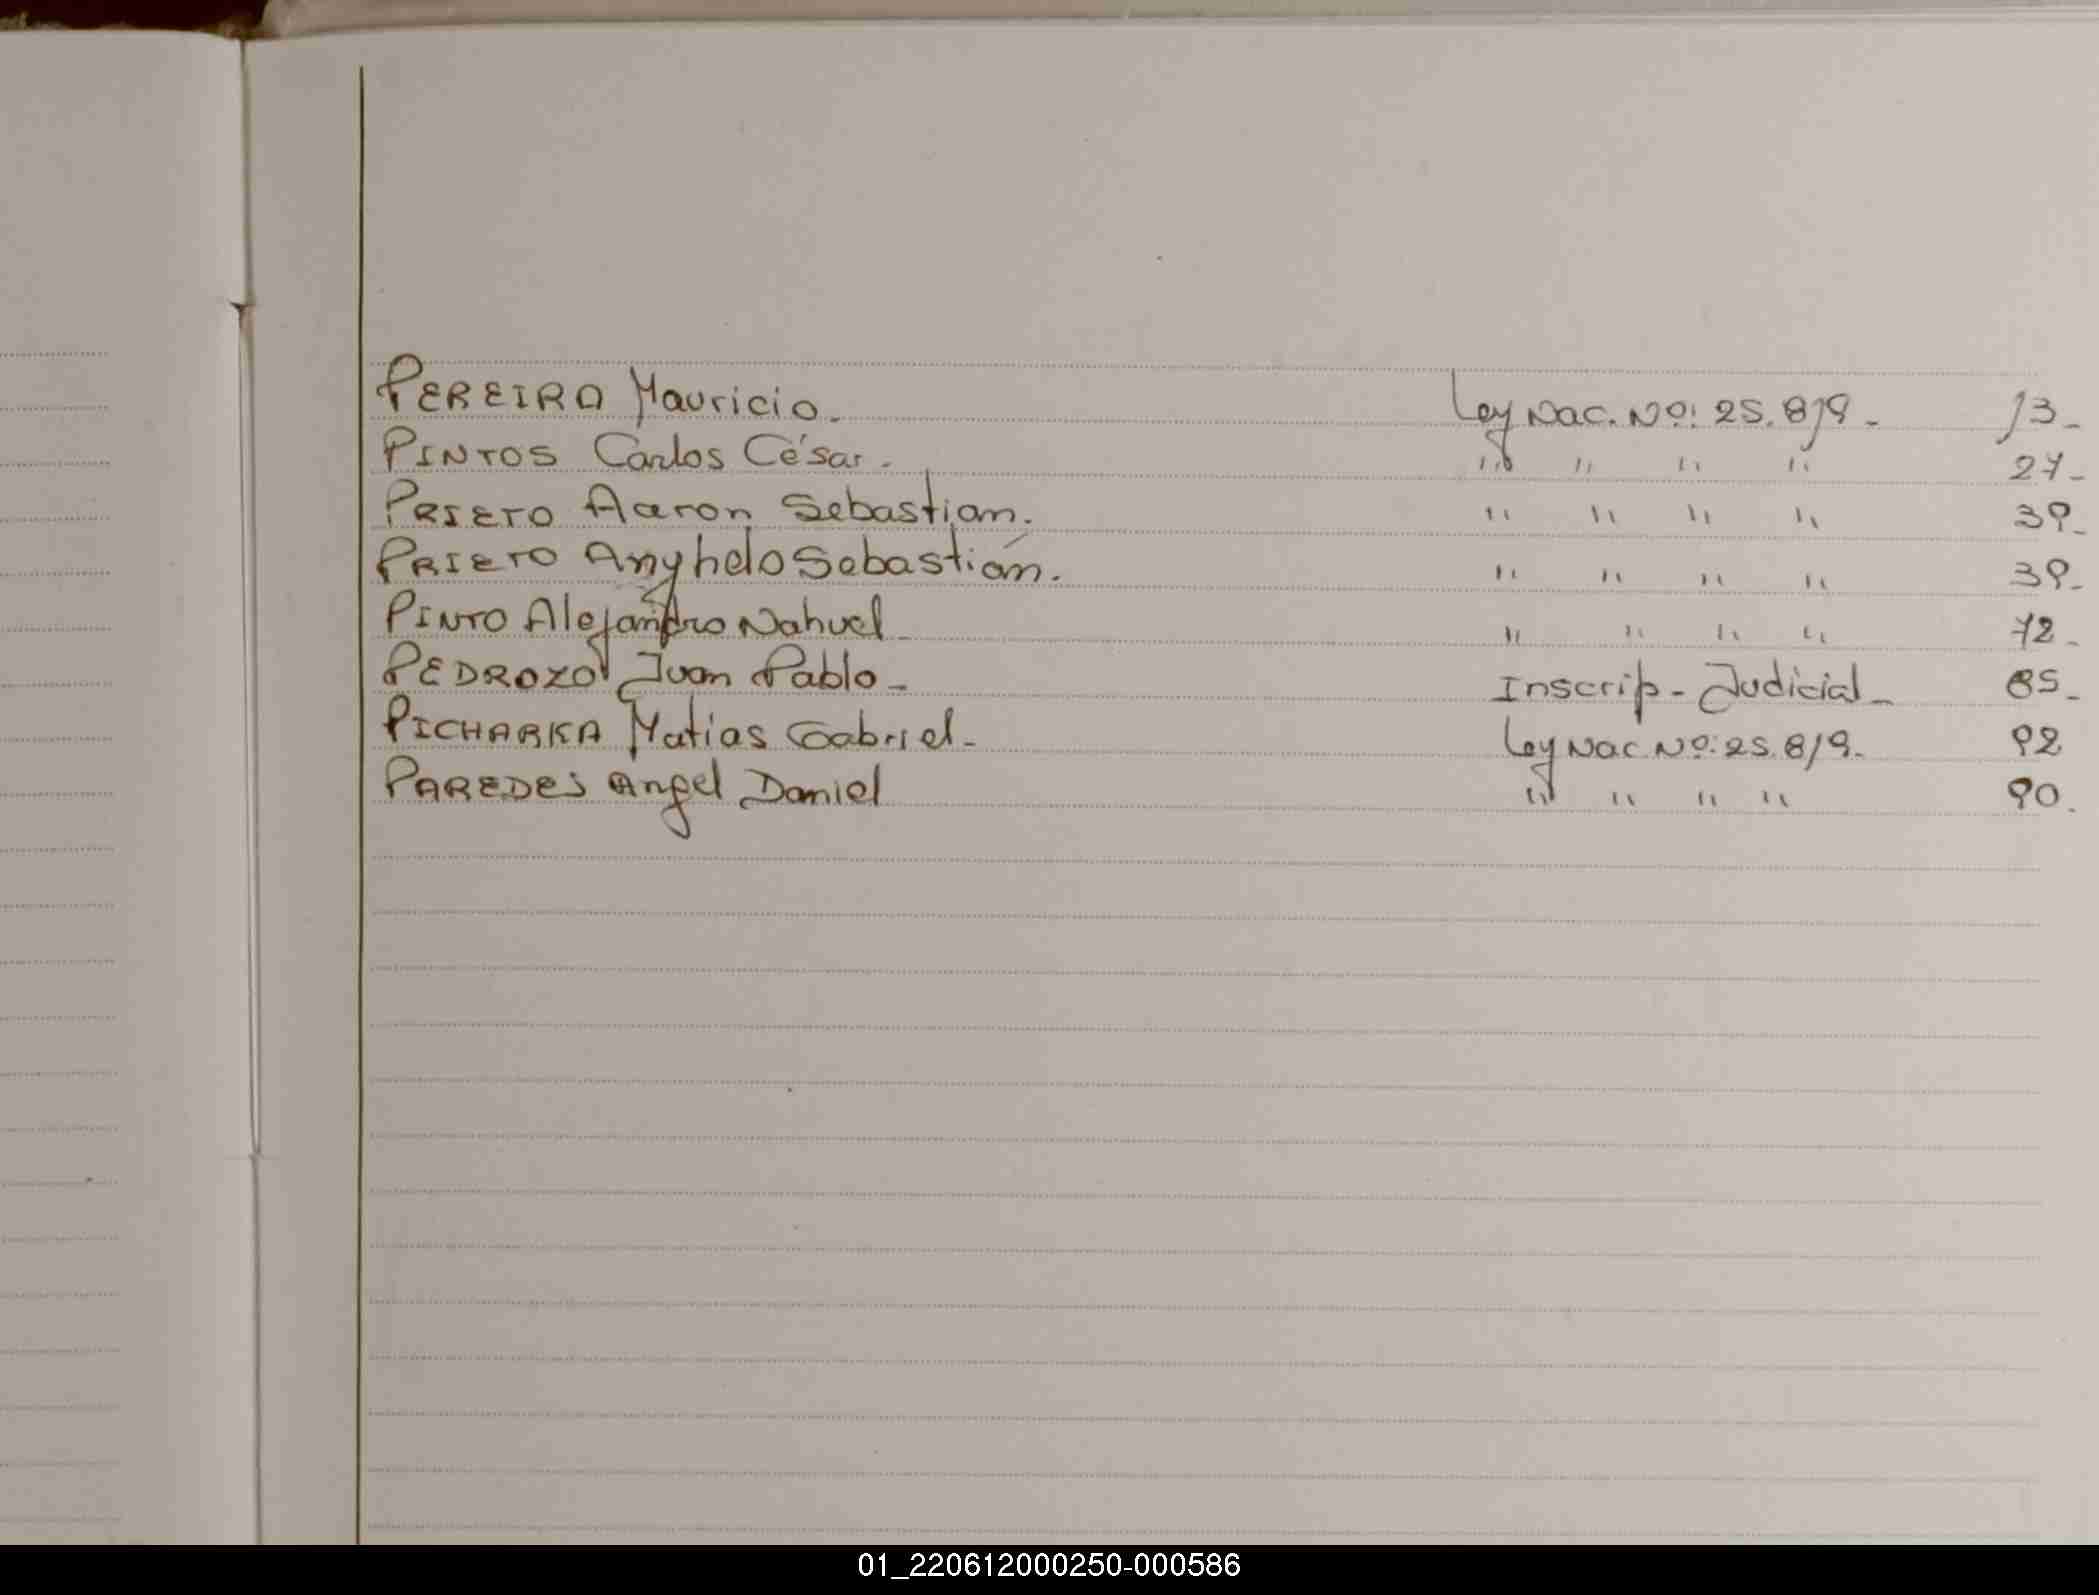 PEREIRA Mauricio. Ley Nac. Nº: 25.819. 13.
PINTOS Carlos César. " " " " 27.
PRIETO Aaron Sebastian. " " " " 39.
PRIETO Anyhelo Sebastián. " " " " 39.
PINTO Alejandro Nahuel " " " " 72.
PEDROZO Juan Pablo. Inscrip. Judicial 85.
PICHARKA Matias Gabriel. Ley Nac. Nº: 25.819. 92
PAREDES Angel Daniel " " " " 90.
01_220612000250-000586